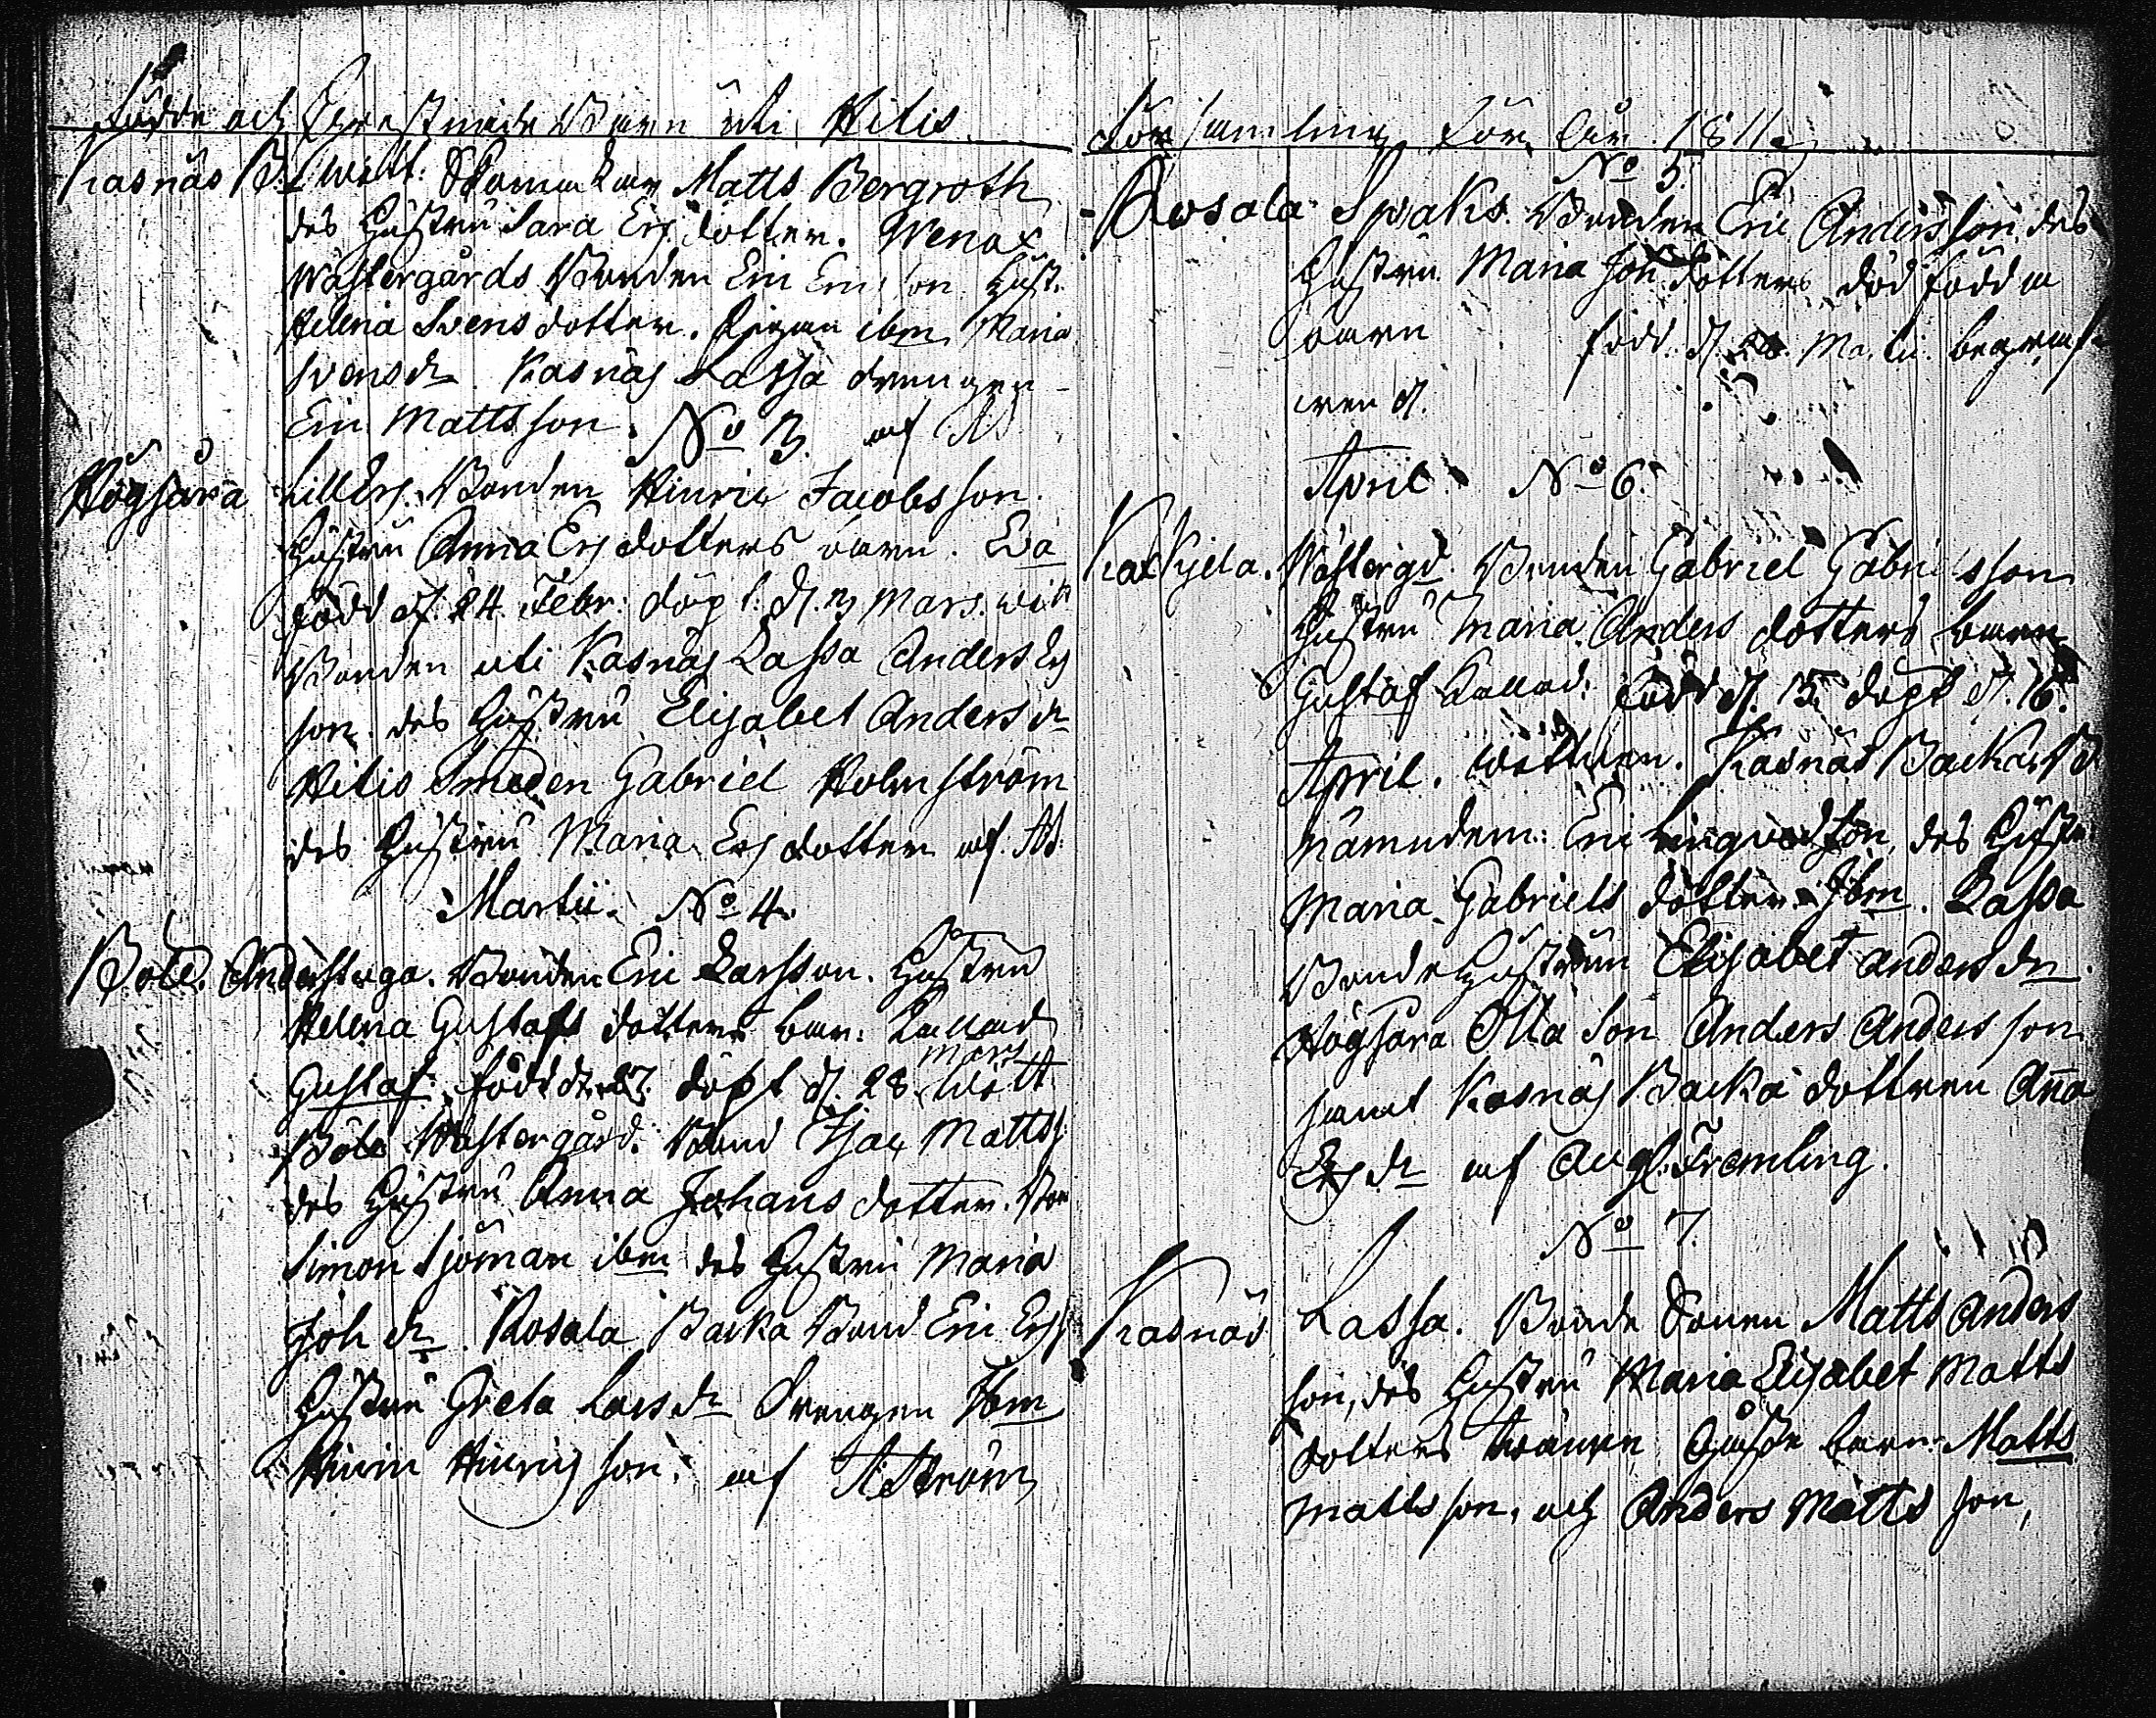 Födde och Christnade Barn uti Hitis
Kasnäs B. Witt: Skomakar Matts Bergroth
des Hustru Sara Ersdotter. Wenox
Wästergårds Bonden Eric Ericson Hust.
Helena Svens dotter. Pigan ibm Maria
Svensdr. Kasnäs Lassa drengen
Eric Mattsson.
No 3. af
Högsara Lillers. Bonden Hinric Jacobsson.
Hustru Anna Ersdotters barn. Eva
född d. 24 Febr: döpt: d. 3 Mars. Witt
Bonden uti Kasnäs Lassa Anders Ers
son. des Hustru Elisabet Anders dr
Hitis Smeden Gabriel Holmström
des Hustru Maria Ersdotter af
Martii. No 4.
Böle. Anderstuga. Bonden Eric Larsson. Hustru
Helena Gustafs dotters barn: Kallad
Gustaf. född d. 27. döpt d. 28 Mars Witt.
Böle Wästergård. Bond Isac Matts
des Hustru Anna Johans dotter.
Simon Sjöman ibm des Hustru Maria
Joh dr. Rosala Backa Bond Eric Ers
Hustru Greta Lars dr Drengen Ibm
Hinric Hinricsson. af A. Ström
Församling för År 1811
No 5.
Rosala Spaks. Bonden Eric Andersson des
Hustru Maria Joh dotters död född
barn född. d. Martii. begraf
ven d.
April. No 6.
Kackjela. Wästergd. Bonden Gabriel Gabrielsson
Hustru Maria Anders dotters barn
Gustaf Kallad: född d. 15 döpt d. 16.
April. Wittnen. Kasnäs Backa B
Nämndem: Eric des Hustr
Maria Gabriels dotter. Ibm. Lassa
Bonde Hustrun Elisabet Anders dr.
Högsara Olla Son Anders Anders son
samt Kasnäs Backa dottren Aña
Ers dr af Aug. Fremling.
No 7.
Kasnäs. Lassa. Bonde Sonen Matts Anders
son, des Hustru Maria Elisabet Matts
dotters twänne barn Matts
Mattsson, och Anders Matts son,